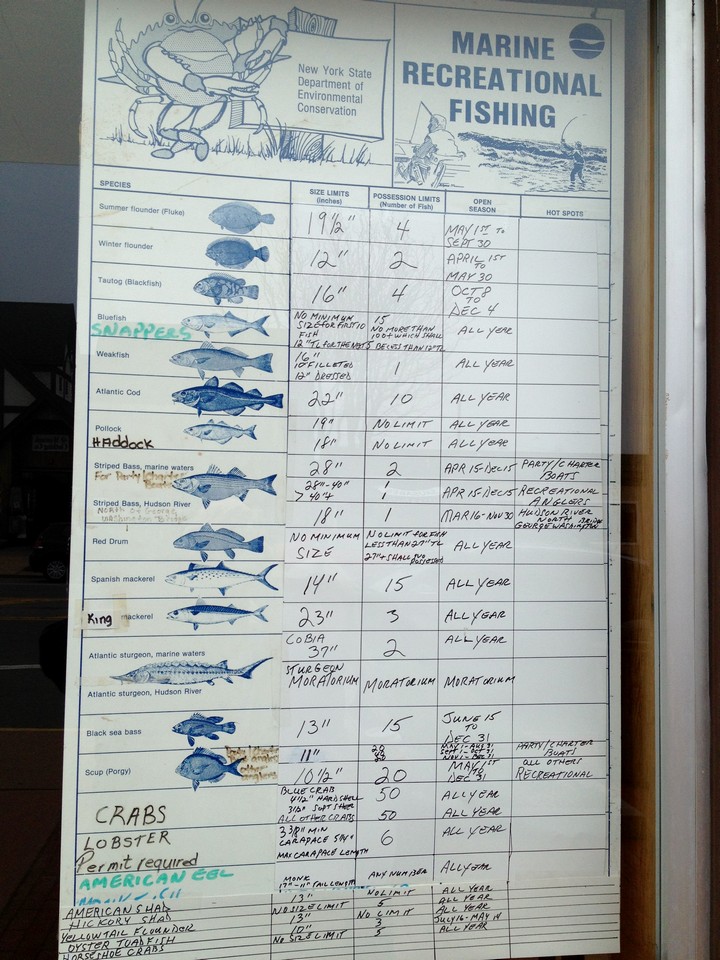 New York State
Department of
Environmental
Conservation
MARINE
RECREATIONAL
FISHING
SPECIES SIZE LIMITS (inches) POSSESSION LIMITS (Number of Fish) OPEN SEASON HOT SPOTS
Summer flounder (Fluke) 19 1/2" 4 MAY 1ST TO SEPT 30
Winter flounder 12" 2 APRIL 1ST TO MAY 30
Tautog (Blackfish) 16" 4 OCT 8 TO DEC 4
Bluefish SNAPPERS NO MINIMUM SIZE FOR FIRST 10 FISH 12" TL FOR THE NEXT 5 15 NO MORE THAN 10 OF WHICH SHALL BE LESS THAN 12" TL ALL YEAR
Weakfish 16" 10" FILLETED 12" DRESSED 1 ALL YEAR
Atlantic Cod 22" 10 ALL YEAR
Pollock 19" NO LIMIT ALL YEAR
HADDOCK 18" NO LIMIT ALL YEAR
Striped Bass, marine waters For Party/Charter Boats 28" 2 APR 15-DEC 15 PARTY/CHARTER BOATS
28"-40" > 40"+ 1 1 APR 15-DEC 15 RECREATIONAL ANGLERS
Striped Bass, Hudson River 18" 1 MAR 16-NOV 30 HUDSON RIVER NORTH GEORGE WASHINGTON BRIDGE
Red Drum NO MINIMUM SIZE NO LIMIT FOR FISH LESS THAN 27" TL 27"+ SHALL NOT POSSESSED ALL YEAR
Spanish mackerel 14" 15 ALL YEAR
King mackerel 23" 3 ALL YEAR
COBIA 37" 2 ALL YEAR
Atlantic sturgeon, marine waters STURGEON MORATORIUM MORATORIUM MORATORIUM
Atlantic sturgeon, Hudson River
Black sea bass 13" 15 JUNE 15 TO DEC 31
11" MAY 1-AUG 31 SEPT 1-OCT 31 NOV 1-DEC 31 PARTY/CHARTER BOATS
Scup (Porgy) 10 1/2" 20 MAY 1ST TO DEC 31 ALL OTHERS RECREATIONAL
CRABS BLUE CRAB 4 1/2" HARD SHELL 3 1/2" SOFT SHELL 50 ALL YEAR
ALL OTHER CRABS 50 ALL YEAR
LOBSTER 3 3/8" MIN CARAPACE MAX CARAPACE LENGTH 6 ALL YEAR
Permit required
AMERICAN EEL MONK 17"-11" TAIL LENGTH ANY NUMBER ALL YEAR
AMERICAN SHAD 13" NO LIMIT ALL YEAR
HICKORY SHAD NO SIZE LIMIT 5 ALL YEAR
YELLOWTAIL FLOUNDER 13" NO LIMIT ALL YEAR
OYSTER TOADFISH 10" 3 JULY 16-MAY 14
HORSESHOE CRABS NO SIZE LIMIT 5 ALL YEAR